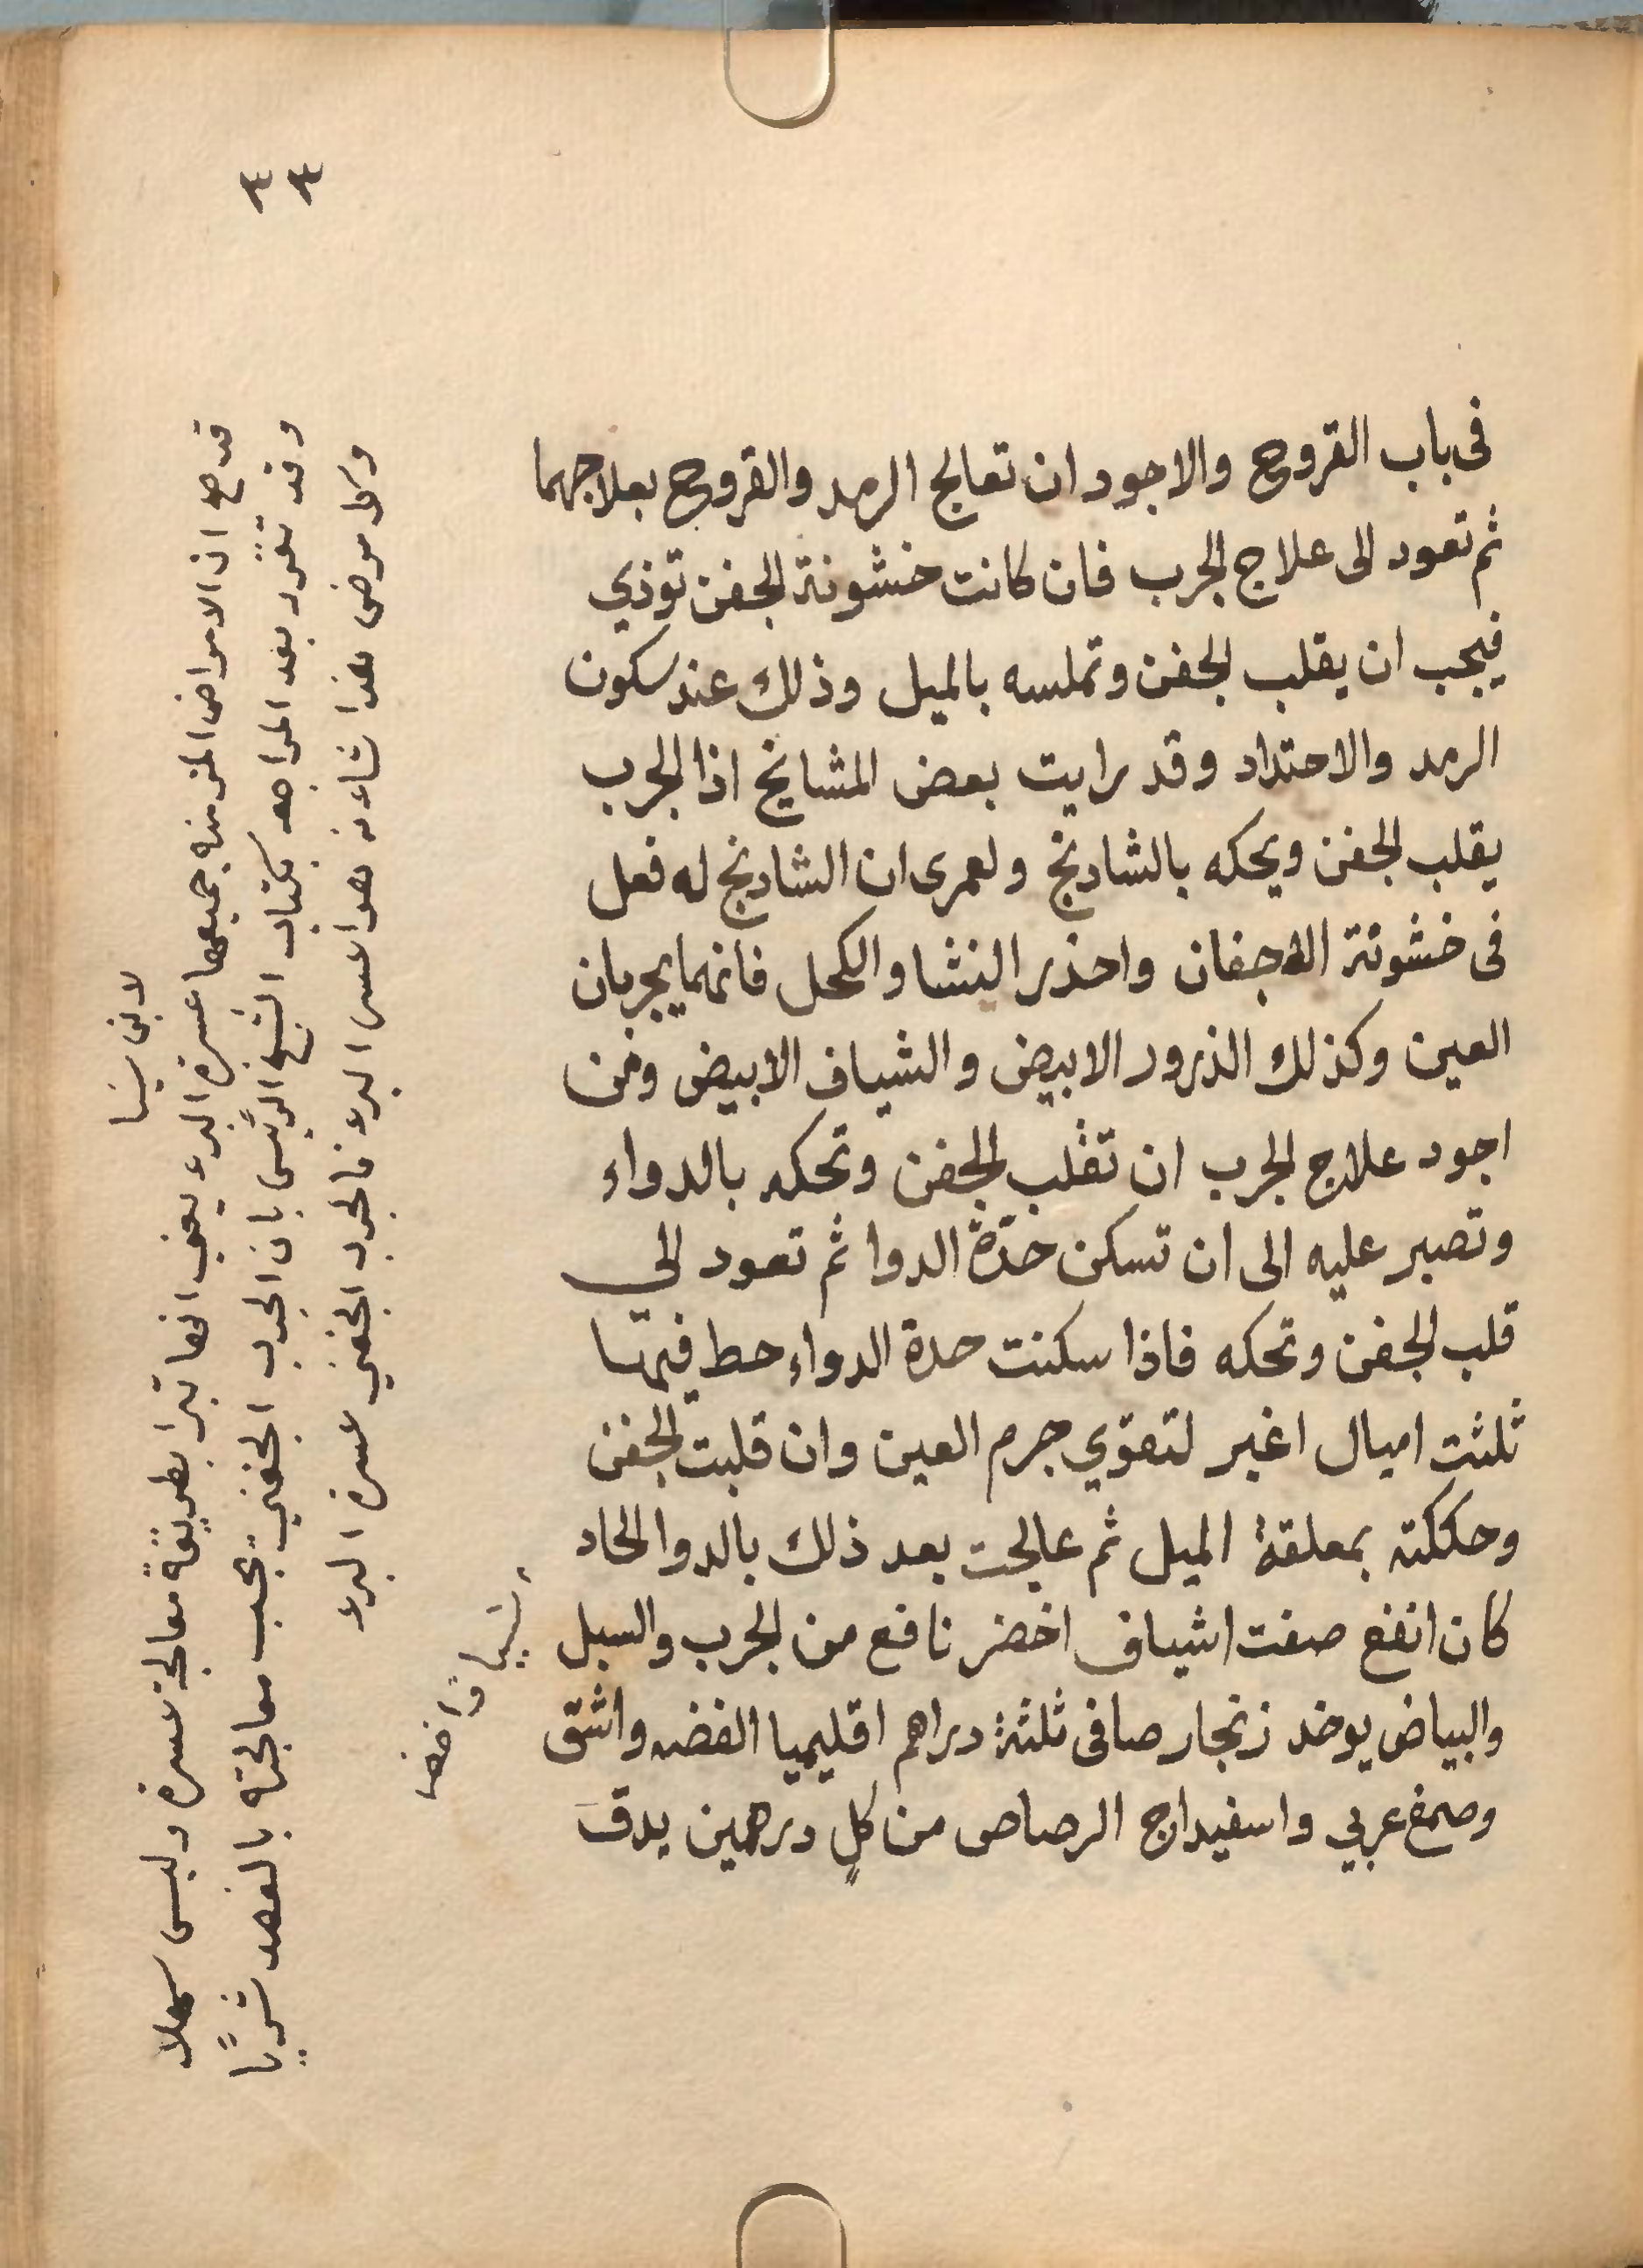 فى باب القروح والاجود ان تعالج الرمد والقروح بعلاجهما
ثم تعود الى علاج الجرب فان كانت خشونة الجفن توذي
فيجب ان يقلب الجفن وتملسه بالميل وذلك عند سكون
الرمد والاحتداد وقد رايت بعض المشايخ اذا الجرب
يقلب الجفن ويحكه بالشادنج ولعمرى ان الشادنج له فعل
فى خشونة الاجفان واحذر النشا والكحل فانهما يجربان
العين وكذلك الذرور الابيض والشياف الابيض ومن
اجود علاج الجرب ان تقلب الجفن وتحكه بالدواء
وتصبر عليه الى ان تسكن حدّة الدوا ثم تعود الى
قلب الجفن وتحكه فاذا سكنت حدة الدواء حط فيهما
ثلثت اميال اغبر لتقوّي جرم العين وان قلبت الجفن
وحككته بمعلقة الميل ثم عالجت بعد ذلك بالدوا الحاد
كان انفع صفت اشياف اخضر نافع من الجرب والسبل
والبياض يوخد زنجار صافى ثلثة دراهم اقليميا الفضه واشق
وصمغ عربي واسفيداج الرصاص من كلٍ درهمين يدق
شياف اخضر
وكل مرض هذا شاءنه هوا عسر البرء فالجرب الجفني عسرة البرء
وقد تقرر بعد المراجعه بكتاب الشيخ الرئيس بان الجرب الجفني تجب معالجته بالفصد
قد صح ان الامراض المزمنه جميعها عسرة البرء يعني انها تبرا بطريقة معالجة عسرة وليس سهلا
لابن سينا